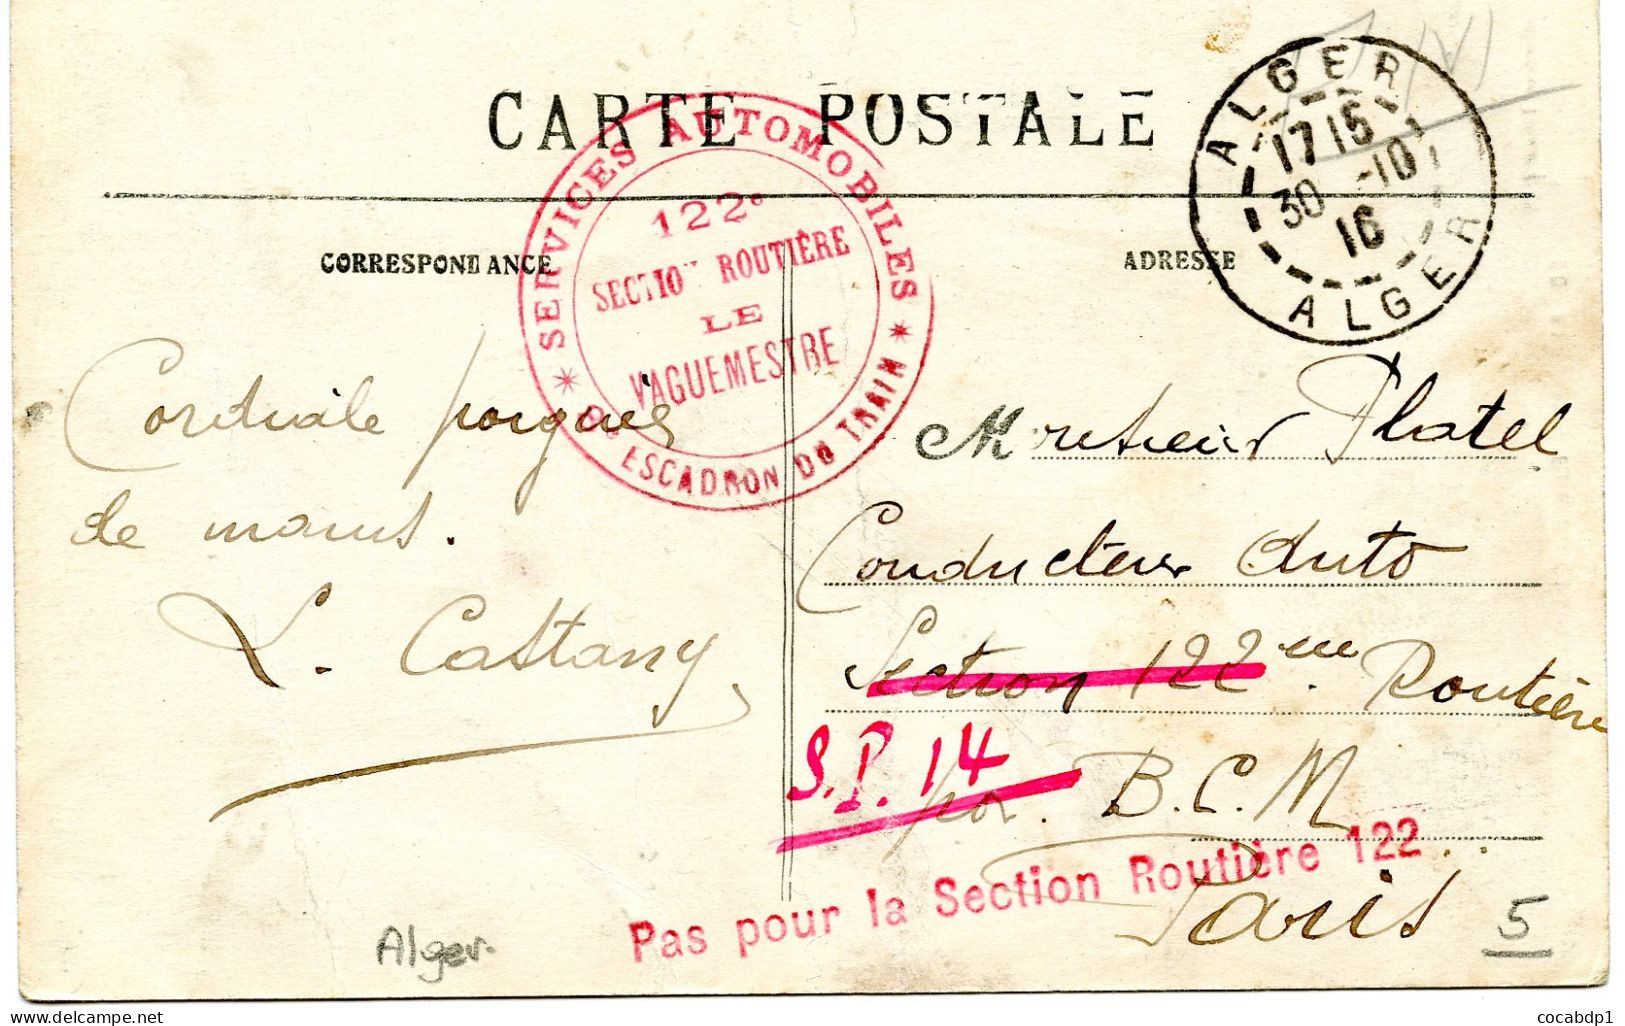 CARTE POSTALE
ALGER
1715
30 -10
16
ALGER
SERVICES AUTOMOBILES
122e
SECTION ROUTIÈRE
LE
VAGUEMESTRE
ESCADRON DU TRAIN
CORRESPONDANCE
ADRESSE
Cordiale poignée
de mains.
L. Castany
Monsieur Platel
Conducteur Auto
Section 122 eme Routière
S.P. 14
par. B.C.M
Paris
Pas pour la Section Routière 122
Alger.
5
cocabdp1